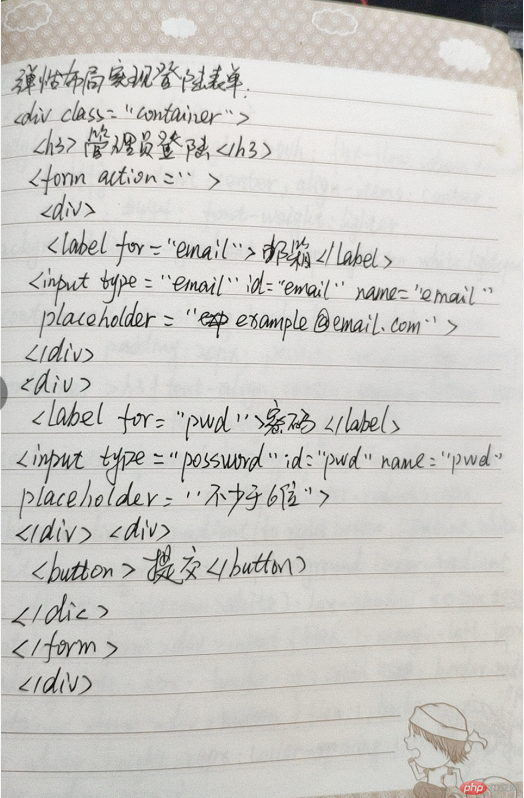 弹性布局实现登陆表单.
<div class="container">
<h3>管理员登陆</h3>
<form action="">
<div>
<label for="email">邮箱</label>
<input type="email" id="email" name="email"
placeholder="example@email.com">
</div>
<div>
<label for="pwd">密码</label>
<input type="possword" id="pwd" name="pwd"
placeholder="不少于6位">
</div> <div>
<button>提交</button>
</dic>
</form>
</div>
php